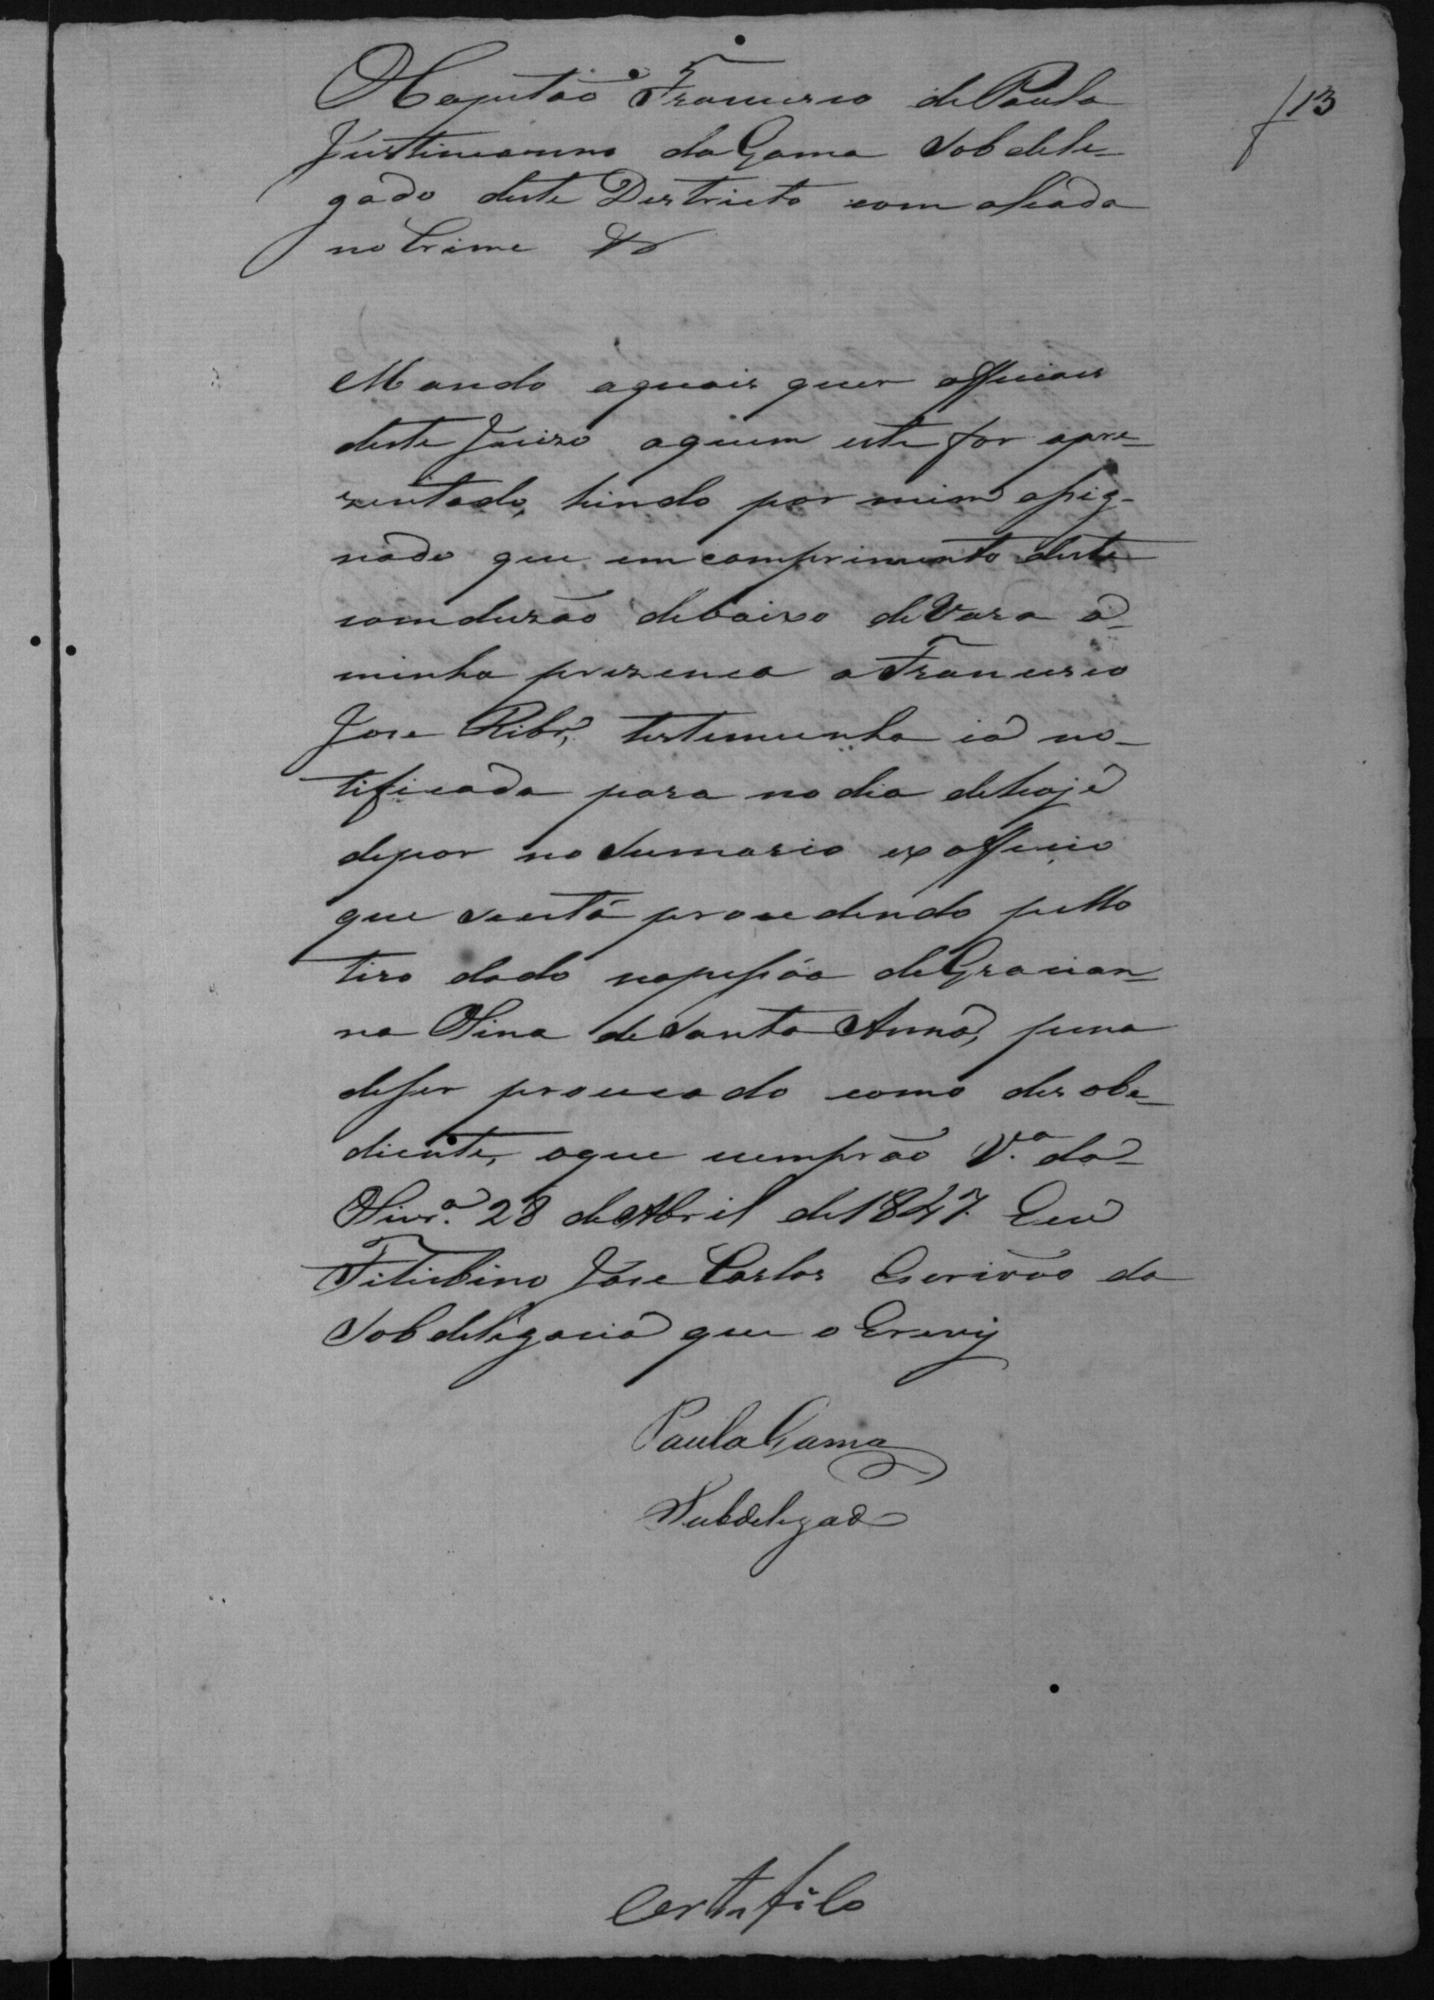 f 13
O Capitão Francisco de Paula
Justiniano da Gama Sobdele-
gado deste Destricto com alsada
no Crime &
Mando a quais quer officiais
deste Juizo a quem este for apre-
zentado, hindo por mim assig-
nado que em comprimento deste
comduzão debaixo de Vara a
minha prezenca a Francisco
Jose Ribr.o, testemunha ia no-
tificada para no dia de hoje
depor no Sumario ex officio
que se está procedendo pello
tiro dado na pessôa de Gracian-
na Lina de Santa Anna, pena
de ser procecado como dezobe-
diente, o que cumprão V.a da
Olivr.a 28 de Abril de 1847. Eeu
Jose Carlos Escrivão da
Sobdelegacia que o Escrevy
Paula Gama
Subdelegado